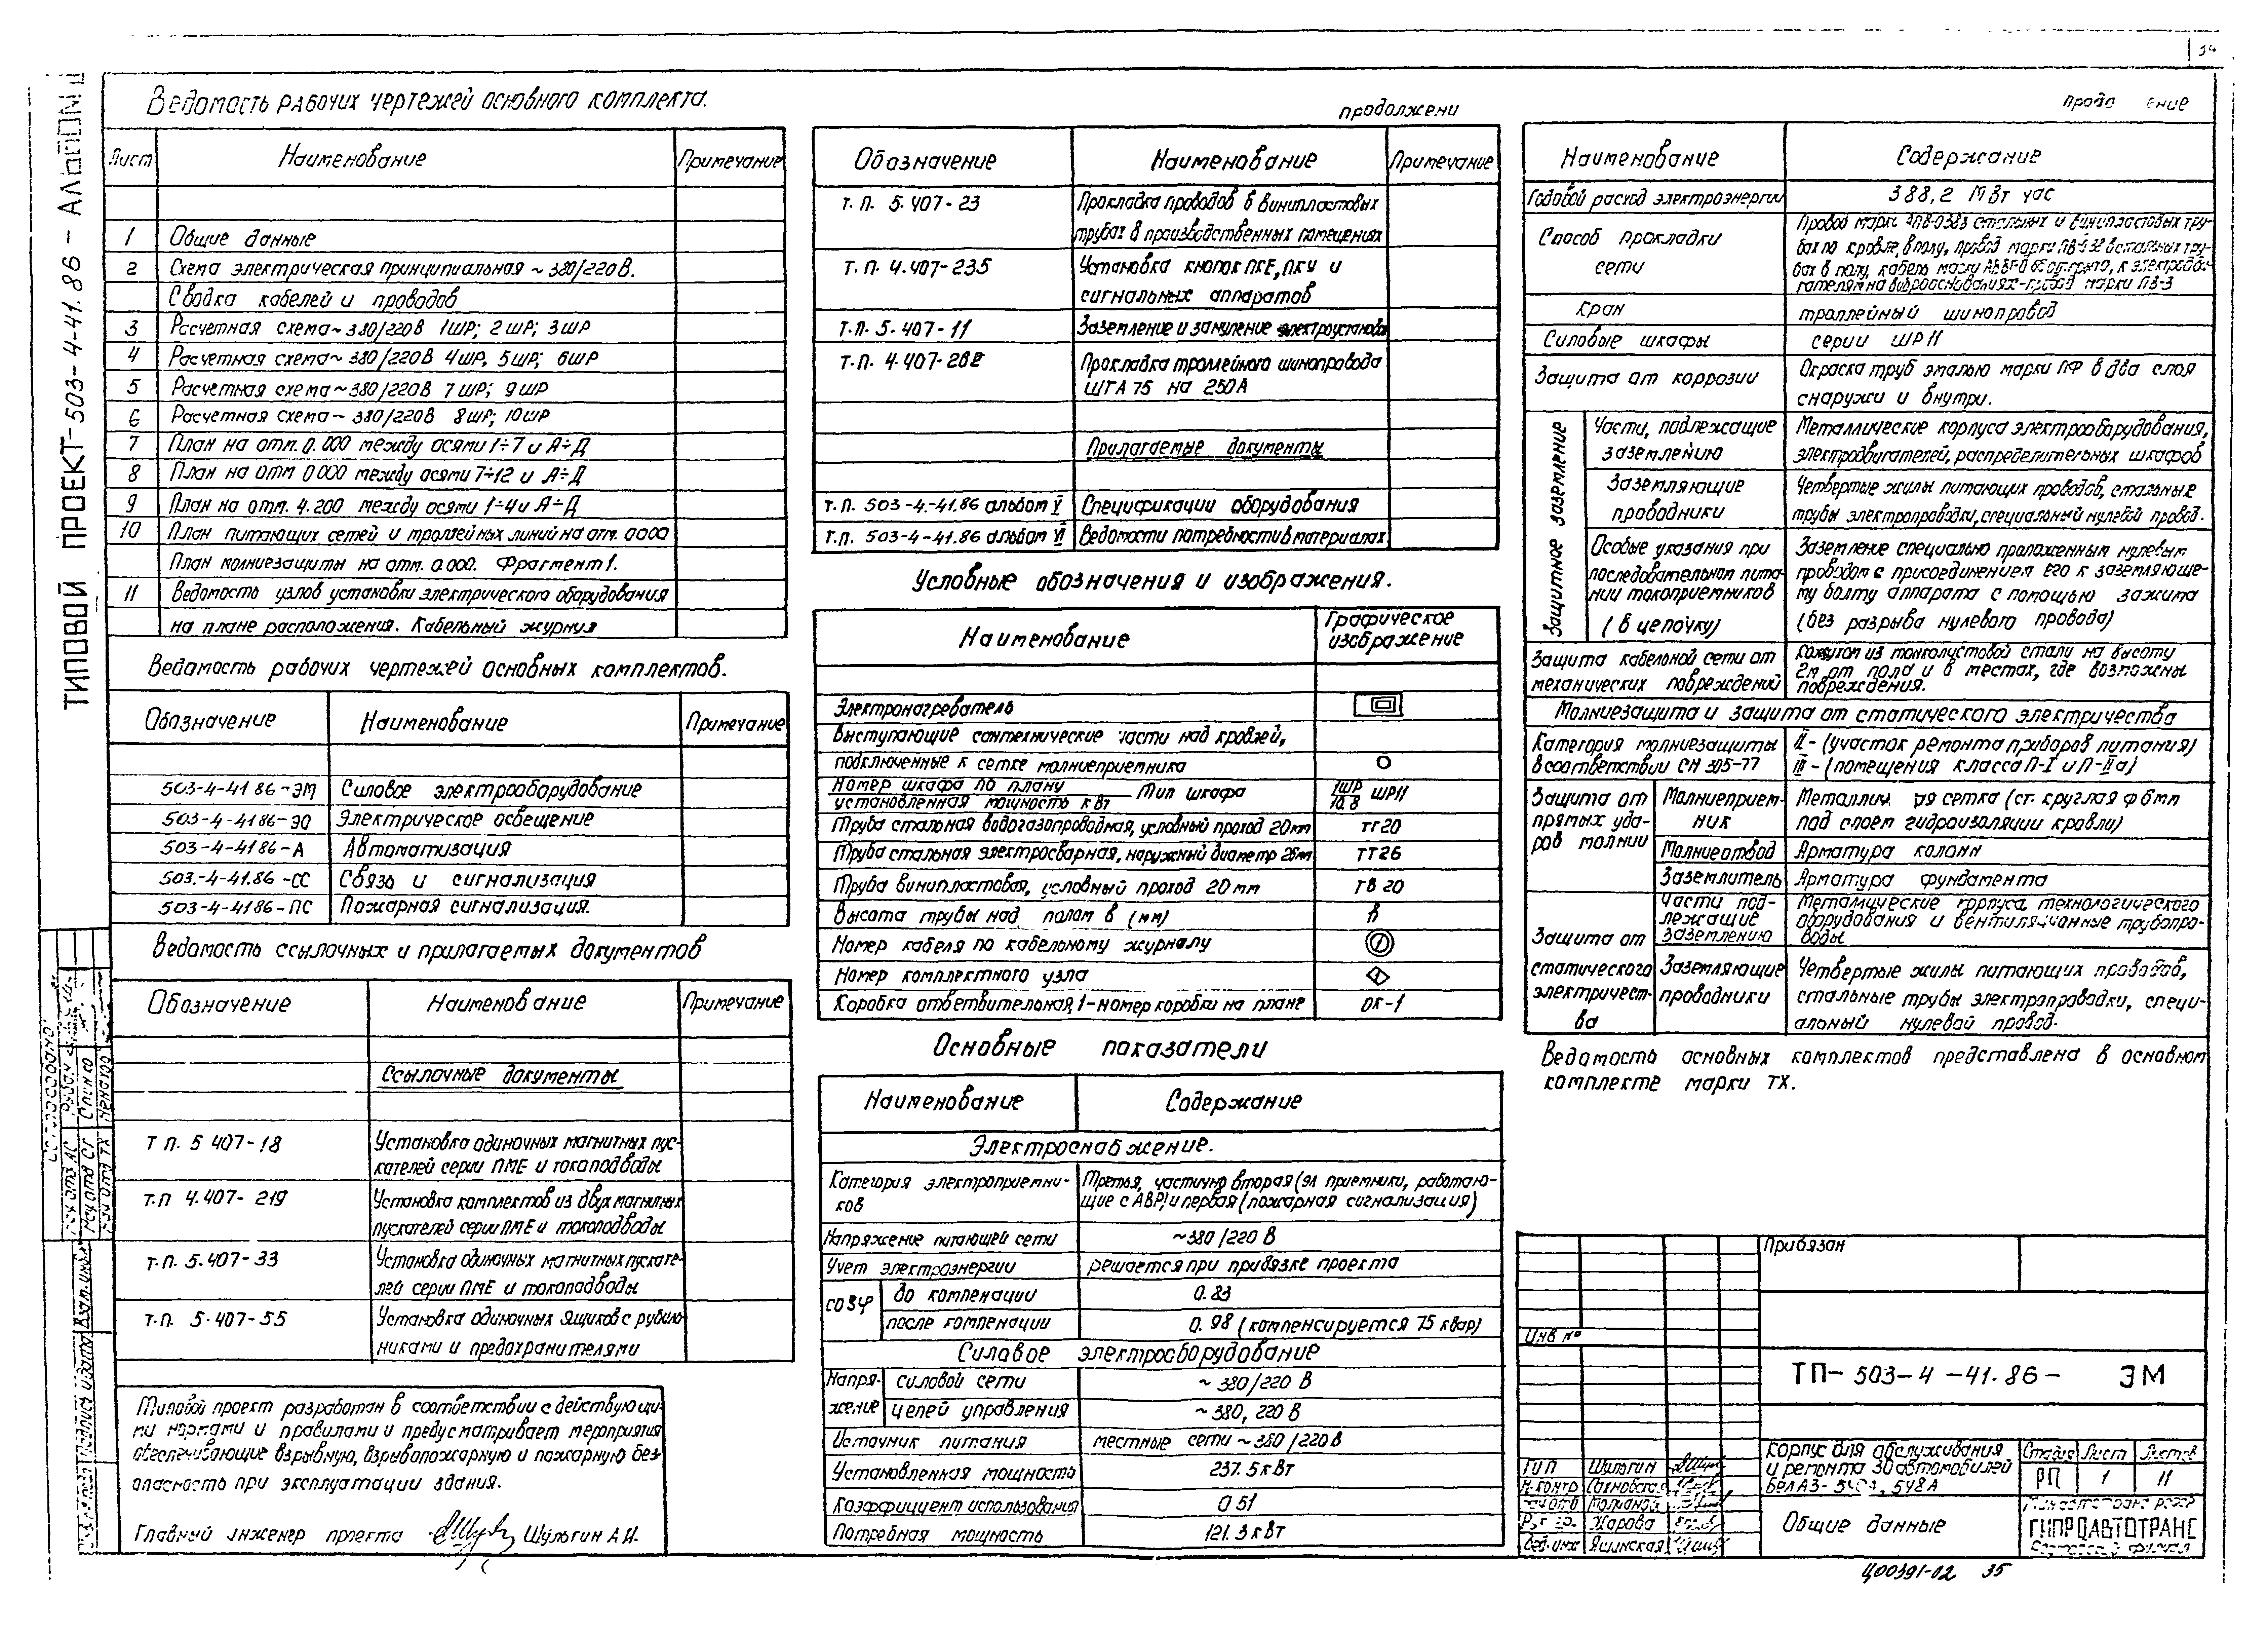 34
ТИПОВОЙ ПРОЕКТ-503-4-41.86 - АЛЬБОМ
Ведомость рабочих чертежей основного комплекта.
Лист Наименование Примечание
1 Общие данные
2 Схема электрическая принципиальная ~ 380/220 В.
Сводка кабелей и проводов
3 Расчетная схема ~ 380/220В 1ШР; 2ШР; 3ШР
4 Расчетная схема ~ 380/220В 4ШР, 5ШР; 6ШР
5 Расчетная схема ~ 380/220В 7ШР; 9ШР
6 Расчетная схема ~ 380/220В 8ШР; 10ШР
7 План на отм. 0.000 между осями 1÷7 и А÷Д
8 План на отм 0 000 между осями 7÷12 и А÷Д
9 План на отм. 4.200 между осями 1÷4 и А÷Д
10 План питающих сетей и троллейных линий на отм. 0 000
План молниезащиты на отм. 0.000. Фрагмент 1.
11 Ведомость узлов установки электрического оборудования
на плане расположения. Кабельный журнул
Ведомость рабочих чертежей основных комплектов.
Обозначение Наименование Примечание
503-4-41 86-ЭМ Силовое электрооборудование
503-4-41 86-ЭО Электрическое освещение
503-4-41 86-А Автоматизация
503.-4-41.86-СС Связь и сигнализация
503-4-41 86-ПС Пожарная сигнализация.
Ведомость ссылочных и прилагаемых документов
Обозначение Наименование Примечание
Ссылочные документы
Т П. 5 407-18 Установка одиночных магнитных пус-
кателей серии ПМЕ и токоподводы
т.п 4.407- 219 Установка комплектов из двух магнитных
пускателей серии ПМЕ и токоподводы
т.п. 5.407-33 Установка одиночных магнитных пускате-
лей серии ПМЕ и токоподводы
т.п. 5.407-55 Установка одиночных ящиков с рубиль-
никами и предохранителями
Типовой проект разработан в соответствии с действующи-
ми нормами и правилами и предусматривает мероприятия
обеспечивающие взрывную, взрывопожарную и пожарную без-
опасность при эксплуатации здания.
Главный инженер проекта Шульгин А.И.
продолжени
Обозначение Наименование Примечание
т. п. 5.407-23 Прокладка проводов в винипластовых
трубах в производственных помещениях
т.п. 4.407-235 Установка кнопок ПКЕ, ПКУ и
сигнальных аппаратов
т.п. 5.407-11 Заземление и зануление электроустановок
т.п. 4.407-262 Прокладка троллейного шинопровода
ШТА 75 на 250А
Прилагаемые документы
т.п. 503-4-41.86 альбом V Спецификации оборудования
т.п. 503-4-41.86 альбом VI Ведомости потребности в материалах
Условные обозначения и изображения.
Наименование Графическое
изображение
Электронагреватель
Выступающие сантехнические части над кровлей,
подключенные к сетке молниеприемника
Номер шкафа по плану Тип шкафа 1ШР ШР11
установленная мощность кВт 10.8
Труба стальная водогазопроводная, условный проход 20мм тг20
Труба стальная электросварная, наружный диаметр 26мм тт26
Труба винипластовая, условный проход 20 мм тв 20
Высота трубы над полом в (мм) h
Номер кабеля по кабельному журналу 1
Номер комплектного узла 1
Коробка ответвительная, 1-номер коробки на плане ок-1
Основные показатели
Наименование Содержание
Электроснабжение.
Категория электроприемни- Третья, частично вторая (эл приемники, работаю-
ков щие с АВР) и первая (пожарная сигнализация)
Напряжение питающей сети ~380/220 В
Учет электроэнергии решается при привязке проекта
cos φ до компенации 0.83
после компенации 0.98 (компенсируется 75 квар)
Силовое электрооборудование
Напря- силовой сети ~ 380/220 В
жение цепей управления ~ 380, 220 В
Источник питания местные сети ~ 380/220 В
Установленная мощность 237.5 кВт
Коэффициент использования 0 51
Потребная мощность 121.3 кВт
Наименование Содержание
Годовой расход электроэнергии 388,2 МВт час
Способ прокладки сети
Кран троллейный шинопровод
Силовые шкафы серии ШР11
Защита от коррозии Окраска труб эмалью марки ПФ в два слоя
снаружи и внутри.
Защитное заземление
Части, подлежащие Металлические корпуса электрооборудования,
заземлению электродвигателей, распределительных шкафов
Заземляющие Четвертые жилы питающих проводов, стальные
проводники трубы электропроводки, специальный нулевой провод.
Особые указания при Заземление специально проложенным нулевым
последовательном пита- проводом с присоединением его к заземляюще-
нии токоприемников му болту аппарата с помощью зажима
(в цепочку) (без разрыва нулевого провода)
Защита кабельной сети от Кожухом из тонколистовой стали на высоту
механических повреждений 2м от пола и в местах, где возможны
повреждения.
Молниезащита и защита от статического электричества
Категория молниезащиты II- (участок ремонта приборов питания)
в соответствии СН 305-77 III-(помещения класса П-I и П-IIа)
Защита от прямых уда- ров молнии
Молниеприем- Металлич. ая сетка (ст. круглая ф 6мм
ник под слоем гидроизоляции кровли)
Молниеотвод Арматура колонн
Заземлитель Арматура фундамента
Защита от статического электричест- ва
Части под- Металлические корпуса технологического
лежащие оборудования и вентиляционные трубопро-
заземлению воды
Заземляющие Четвертые жилы питающих проводов,
проводники стальные трубы электропроводки, специ-
альный нулевой провод.
Ведомость основных комплектов представлена в основном
комплекте марки ТХ.
Привязан
Инв №
ТП- 503-4 -41.86- ЭМ
Корпус для обслуживания
и ремонта 30 автомобилей
БелАЗ- 540А, 548А
Стадия Лист Листов
РП 1 11
Общие данные
ГИПРОАВТОТРАНС
ГИП Шульгин
Н.контр
Жарова
Вед.инж Яшинская
Ц00391-02 35